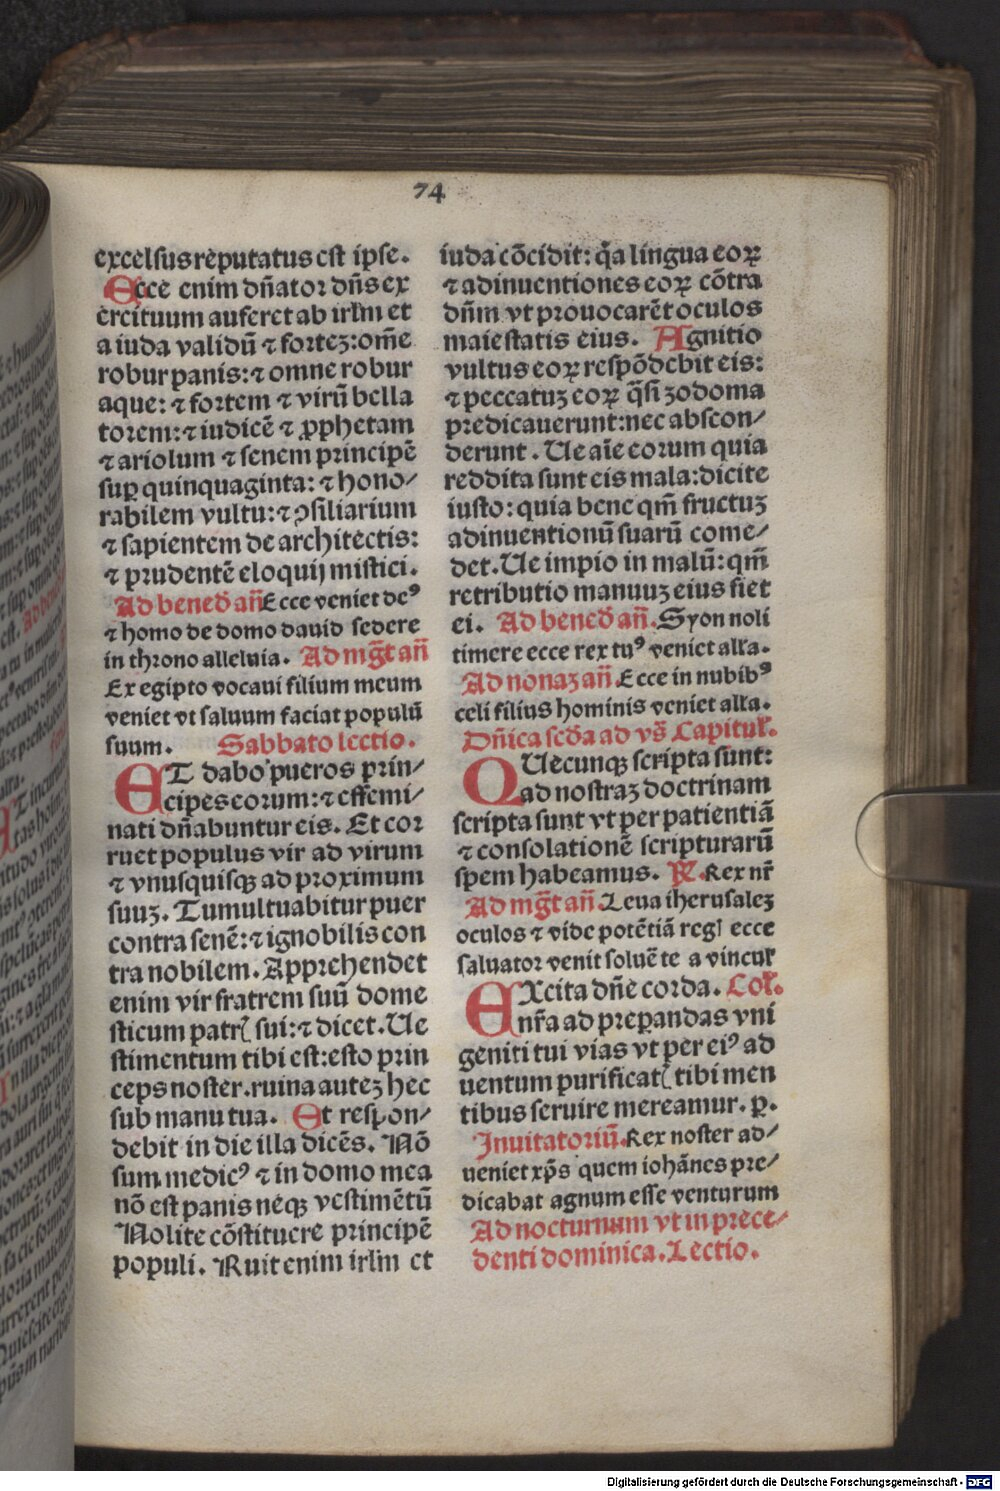 74
excelsus reputatus est ipse.
Ecce enim dn̄ator dn̄s ex
ercituum auferet ab irl̄m et
a iuda validū ⁊ fortez: om̄e
robur panis: ⁊ omne robur
aque: ⁊ fortem ⁊ virū bella
torem: ⁊ iudicē ⁊ ꝓphetam
⁊ ariolum ⁊ senem principē
suꝑ quinquaginta: ⁊ hono/
rabilem vultu: ⁊ ꝯsiliarium
⁊ sapientem de architectis:
⁊ prudentē eloquij mistici.
Ad bened̄ an̄ Ecce veniet deꝰ
⁊ homo de domo dauid sedere
in throno alleluia. Ad mḡt an̄
Ex egipto vocaui filium meum
veniet vt saluum faciat populū
suum. Sabbato lectio.
ET dabo pueros prin/
cipes eorum: ⁊ effemi/
nati dn̄abuntur eis. Et cor
ruet populus vir ad virum
⁊ vnusquisqꝫ ad proximum
suuz. Tumultuabitur puer
contra senē: ⁊ ignobilis con
tra nobilem. Apprehendet
enim vir fratrem suū dome
sticum patrꝭ sui: ⁊ dicet. Ue
stimentum tibi est: esto prin
ceps noster. ruina autez hec
sub manu tua. Et respon/
debit in die illa dicēs. Nō
sum medicꝰ ⁊ in domo mea
nō est panis neqꝫ vestimētū
Nolite cōstituere principē
populi. Ruit enim irl̄m et
iuda cōcidit: q̄a lingua eoꝝ
⁊ adinuentiones eoꝝ cōtra
dn̄m vt prouocarēt oculos
maiestatis eius. Agnitio
vultus eoꝝ respōdebit eis:
⁊ peccatuz eoꝝ q̄si zodoma
predicauerunt: nec abscon/
derunt. Ue aīe eorum quia
reddita sunt eis mala: dicite
iusto: quia bene qm̄ fructuz
adinuentionū suarū come/
det. Ue impio in malū: qm̄
retributio manuuz eius fiet
ei. Ad bened̄ an̄. Syon noli
timere ecce rex tuꝰ veniet all̄a.
Ad nonaz an̄. Ecce in nubibꝰ
celi filius hominis veniet all̄a.
Dn̄ica sed̄a ad vs̄ Capitul̄.
QUecunqꝫ scripta sunt:
ad nostraz doctrinam
scripta sunt vt per patientiā
⁊ consolationē scripturarū
spem habeamus. ℟. Rex nr̄
Ad mḡt an̄. Leua iherusalez
oculos ⁊ vide potētiā regꝭ ecce
saluator venit soluē te a vincul̄
EXcita dn̄e corda. Col̄.
nr̄a ad preparandas vni
geniti tui vias vt per eiꝰ ad
uentum purificatꝭ tibi men
tibus seruire mereamur. p.
Inuitatoriū. Rex noster ad/
ueniet xp̄s quem iohānes pre/
dicabat agnum esse venturum
Ad nocturnum vt in prece/
denti dominica. Lectio.
Digitalisierung gefördert durch die Deutsche Forschungsgemeinschaft - DFG